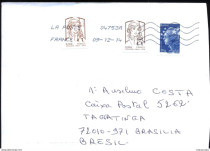 LA POSTE 04753A
FRANCE 09-12-14
Mr Anselmo COSTA
Caixa Postal 5262
TAGUATINGA
72010-971 BRASILIA
BRESIL